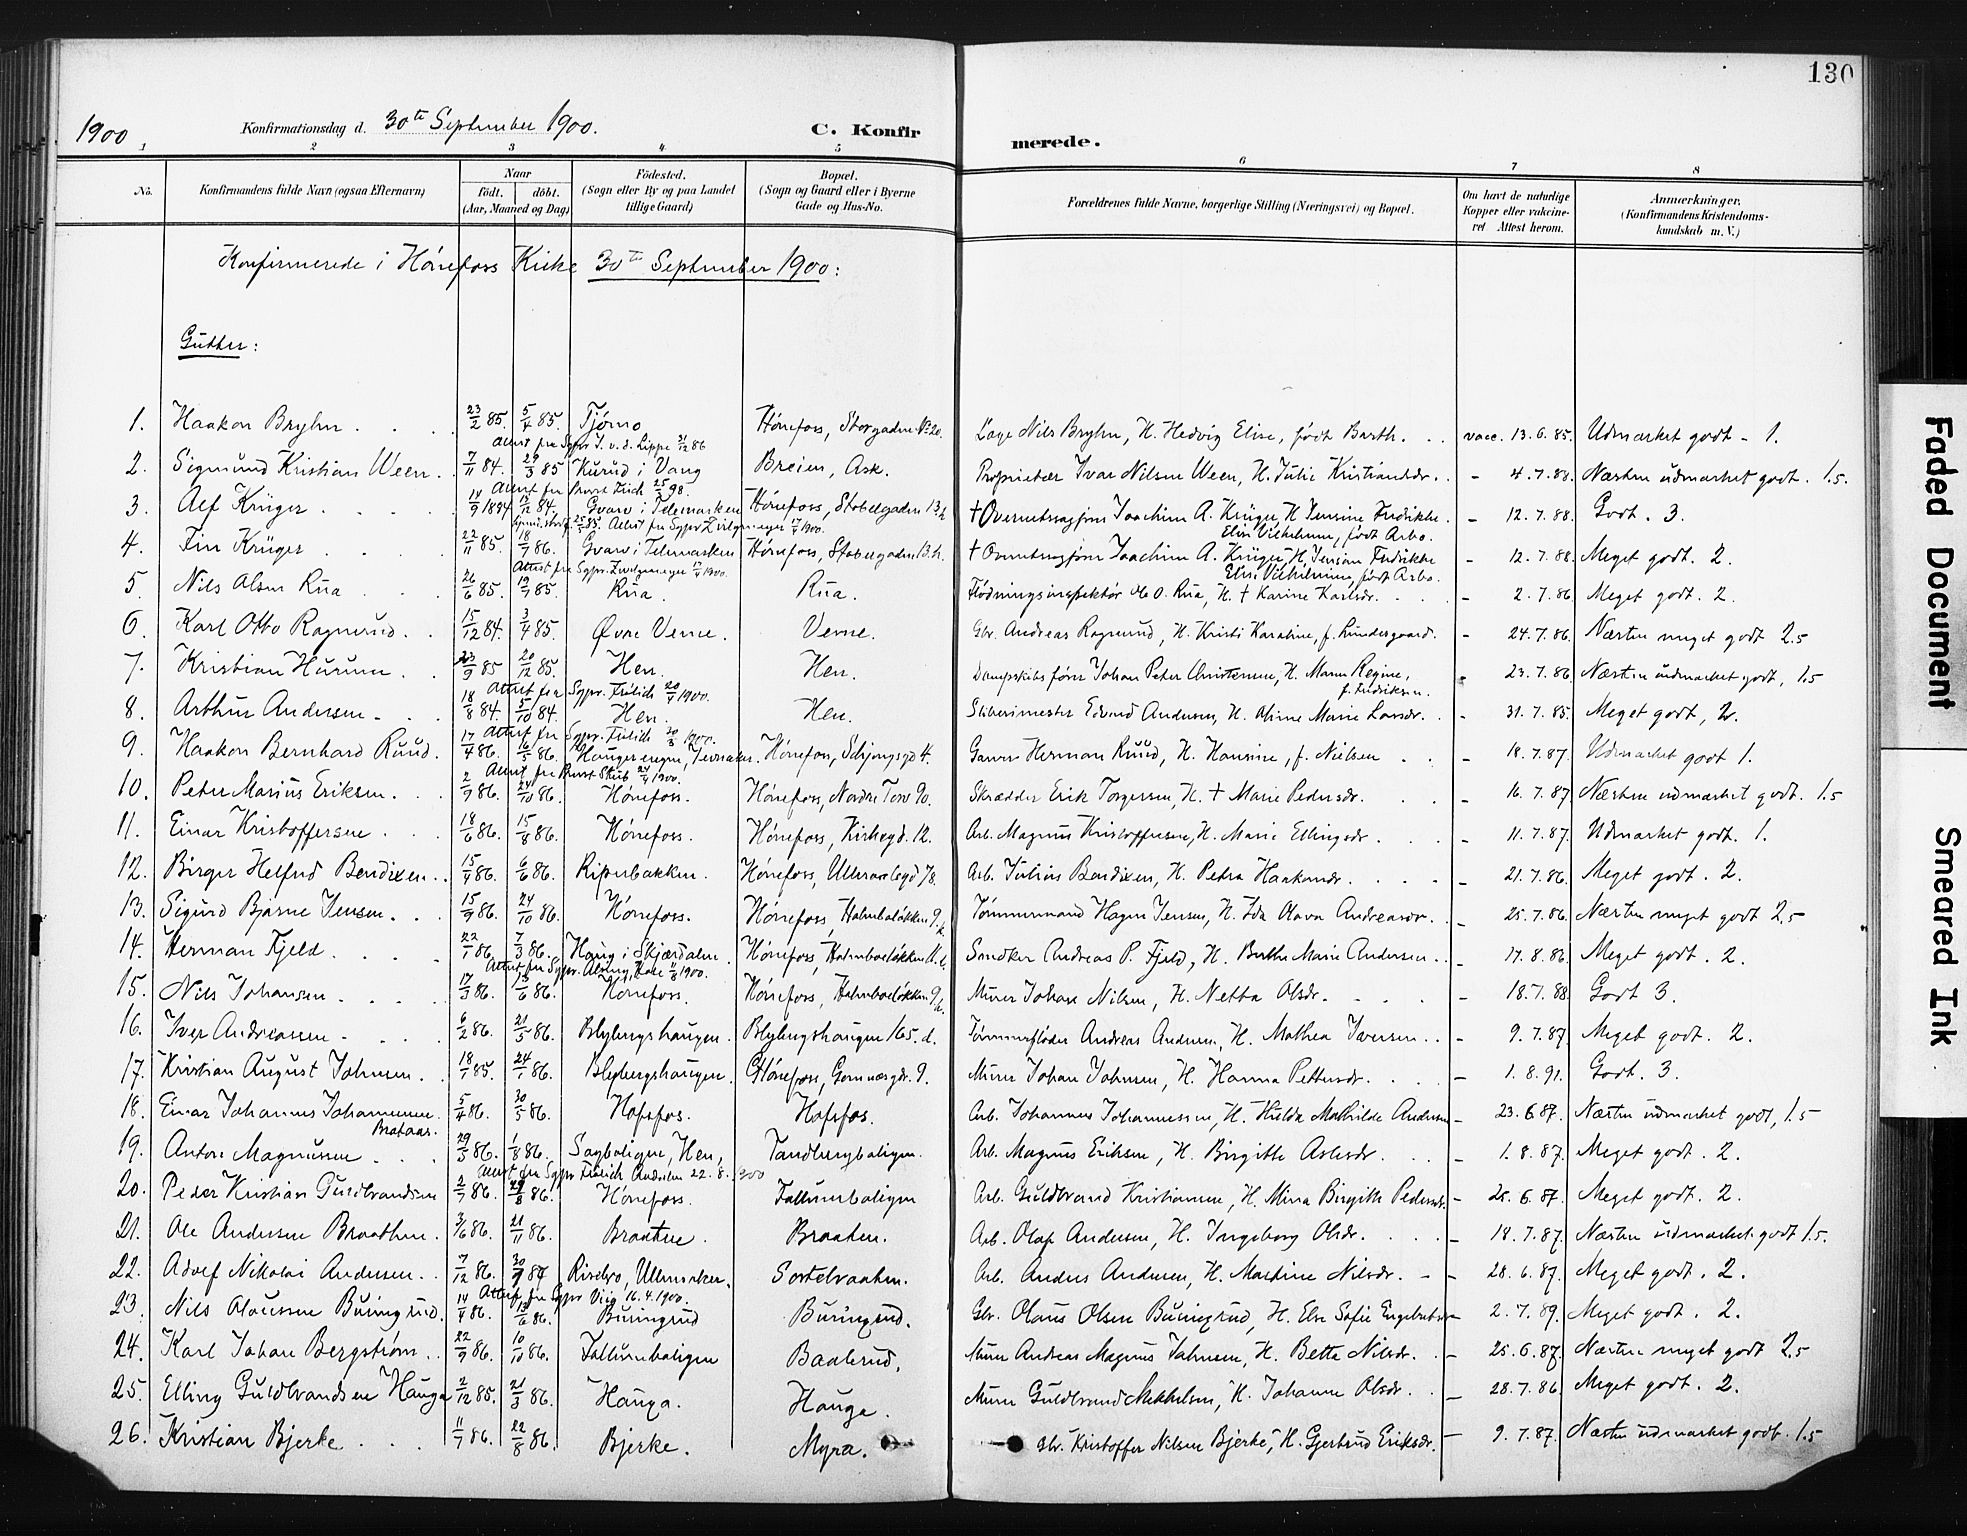 130
1900 Konfirmationsdag d. 30te September 1900. C. Konfir merede.
1 2 3 4 5 6 7 8
No. Konfirmandens fulde Navn (ogsaa Efternavn) Naar født. døbt. (Aar, Maaned og Dag) Fødested. (Sogn eller By og paa Landet tillige Gaard) Bopæl. (Sogn og Gaard eller i Byerne Gade og Hus-No. Forældrenes fulde Navne, borgerlige Stilling (Næringsvei) og Bopæl. Om havt de naturlige Kopper eller vakcineret Attest herom. Anmærkninger. (Konfirmandens Kristendomskundskab m. V.)
Konfirmerede i Hønefoss Kirke 30te September 1900:
Gutter:
1. Haakon Bryhn 23/2 85. 5/4 85. Tjømø Hønefoss, Storgaden No 20. Læge Nils Bryhn, H. Hedvig Elise, født Barth. vacc. 13.6.85. Udmærket godt - 1.
Attest fra Sgpr. J. v. d. Lippe 31/12 86
2. Sigmund Kristian Ween 7/11 84. 29/3 85 Kurud i Vang Breien, Ask. Proprietær Ivar Nilsen Ween, H. Julie Kristiansdr. - 4.7.88. Næsten udmærket godt. 1.5.
Attest fra Provst 25/5 98.
3. Alf Krüger 14/9 1884 12/12 84. Gvarv i Telemarken Hønefoss, Stabelgaden 13h † Overretssagfører Joachim A. Krüger, H. Jensine Fredrikke - 12.7.88. Godt. 3.
Attest fra Sgpr. 17/4 1900. Elise Vilhelmine, født Arbo.
4. Fin Krüger 22/11 85. 18/7 86. Gvarv i Telemarken Hønefoss, Stabelgaden 13.h. † Overretssagfører Joachim A. Krüger, H. Jensine Fredrikke - 12.7.88. Meget godt. 2.
Attest fra Sgpr. 17/4 1900. Elise Vilhelmine, født Arbo.
5. Nils Olsen Rua 26/6 85. 19/7 85. Rua. Rua. Flødningsinspektør Ole O. Rua, H. † Karine Karlsdr. - 2.7.86 Meget godt. 2.
6. Karl Otto Ragnerud. 15/12 84. 3/4 85. Øvre Verne. Verne. Gbr. Andreas Ragnerud, H. Kristi Karoline, f. Lundesgaard. - 24.7.86. Næsten meget godt 2.5
7. Kristian Hurum 23/9 85 20/12 85. Hen. Hen. Dampskibsfører Johan Peter Christensen, H. Maren Regine, f. Fredriksen. - 23.7.86. Næsten udmærket godt, 1.5
Attest fra Sgpr. Frölich 20/7 1900.
8. Arthur Andersen 18/8 84. 5/10 84. Hen. Hen. Sliberimester Edvard Andersen, H. Oline Marie Larsdr. - 31.7.85. Meget godt, 2.
Attest fra Sgpr. Frölich 20/3 1900.
9. Haakon Bernhard Ruud. 17/4 86. 16/5 86. Haugerengen, Jevnaker. Hønefoss, Schjongsgd 4. Garver Herman Ruud, H. Hansine, f. Nielsen - 18.7.87. Udmærket godt 1.
Attest fra Provst 24/4 1900.
10. Peter Marius Eriksen. 2/9 86. 24/10 86. Hønefoss. Hønefoss, Nordre Torv 90. Skrædder Erik Torgersen, H. † Marie Pedersdr. - 16.7.87 Næsten udmærket godt. 1.5
11. Einar Kristoffersen 18/6 86. 15/8 86. Hønefoss. Hønefoss, Kirkegd. 12. Arb. Magnus Kristoffersen, H. Marie Ellingsdr. - 11.7.87. Udmærket godt. 1.
12. Birger Helfred Bendixen. 15/4 86. 6/6 86. Riperbakken. Hønefoss, Ulleraalsgd 78. Arb. Julius Bendixen, H. Petra Haakonsdr. - 21.7.86. Meget godt. 2.
13. Sigurd Bjarne Jensen. 15/9 86. 24/10 86. Hønefoss. Hønefoss, Holmboeløkken 9. Tømmermand Hagen Jensen, H. Ida Olava Andreasdr. - 25.7.86. Næsten meget godt 2.5
14. Herman Fjeld 22/1 86. 7/3 86. Haug i Skjærdalen. Hønefoss, Holmboeløkken 11. Snedker Andreas P. Fjeld, H. Berthe Marie Andersen. - 17.8.86. Meget godt. 2.
Attest fra Sgpr. Alsing, Hole 11/8 1900.
15. Nils Johansen 17/3 86. 13/6 86. Hønefoss. Hønefoss, Holmboeløkken 9. Murer Johan Nilsen, H. Netta Olsdr. - 18.7.88. Godt 3.
16. Iver Andreassen 6/2 86. 21/5 86. Blybergshaugen. Blybergshaugen 165.d. Tømmerfløder Andreas Andersen, H. Mathea Iversen. - 9.7.87. Meget godt. 2.
17. Kristian August Johnsen. 18/1 85. 24/1 86. Blybergshaugen. Hønefoss, Gornæsgd. 9. Murer Johan Johnsen, H. Hanna Pettersdr. - 1.8.91. Godt. 3.
18. Einar Johannes Johannessen Brataas. 5/4 86. 30/5 86. Hofsfos. Hofsfos. Arb. Johannes Johannessen, H. Hulda Mathilde Andersen - 23.6.87. Næsten udmærket godt, 1.5
19. Anton Magnussen 29/5 86. 1/8 86. Sagboligen, Hen, Tandbergboligen. Arb. Magnus Eriksen, H. Birgitte Aslesdr. - 1.8.87. Meget godt. 2.
Attest fra Sgpr. Frölich 22.8.1900
20. Peder Kristian Guldbrandsen 2/7 86. 29/8 86. Hønefoss. Follumboligen Arb. Guldbrand Kristiansen, H. Mina Birgitte Pedersdr. - 25.6.87. Meget godt. 2.
21. Ole Andersen Braathen. 3/6 86. 21/11 86. Braaten. Braaten. Arb. Olaf Andersen, H. Ingeborg Olsdr. - 18.7.87. Næsten udmærket godt 1.5.
22. Adolf Nikolai Andersen. 7/12 86. 30/9 84 Risebro, Ullensaker. Sortebraaten. Arb. Anders Andersen, H. Martine Nilsdr. - 28.6.87. Meget godt. 2.
Attest fra Sgpr. 16.4.1900.
23. Nils Olaussen Buingrud. 14/4 86. 13/6 86. Buingrud Buingrud. Gbr. Olaus Olsen Buingrud, H. Else Sofie Engebretsdr - 2.7.89. Meget godt. 2.
24. Karl Johan Bergstrøm. 22/9 86. 10/10 86. Follumboligen Baalerud. Murer Andreas Magnus Johnsen, H. Betta Nilsdr. - 25.6.87. Næsten meget godt 2.5
25. Elling Guldbrandsen Hauga 2/12 85. 21/3 86. Hauga. Hauga. Murer Guldbrand Mikkelsen, H. Johanne Olsdr. - 28.7.86. Meget godt. 2.
26. Kristian Bjerke 11/7 86. 22/8 86. Bjerke. Myra. Gbr. Kristoffer Nilsen Bjerke, H. Gjertrud Eriksdr. - 9.7.87. Næsten udmærket godt. 1.5
Faded Document
Smeared Ink